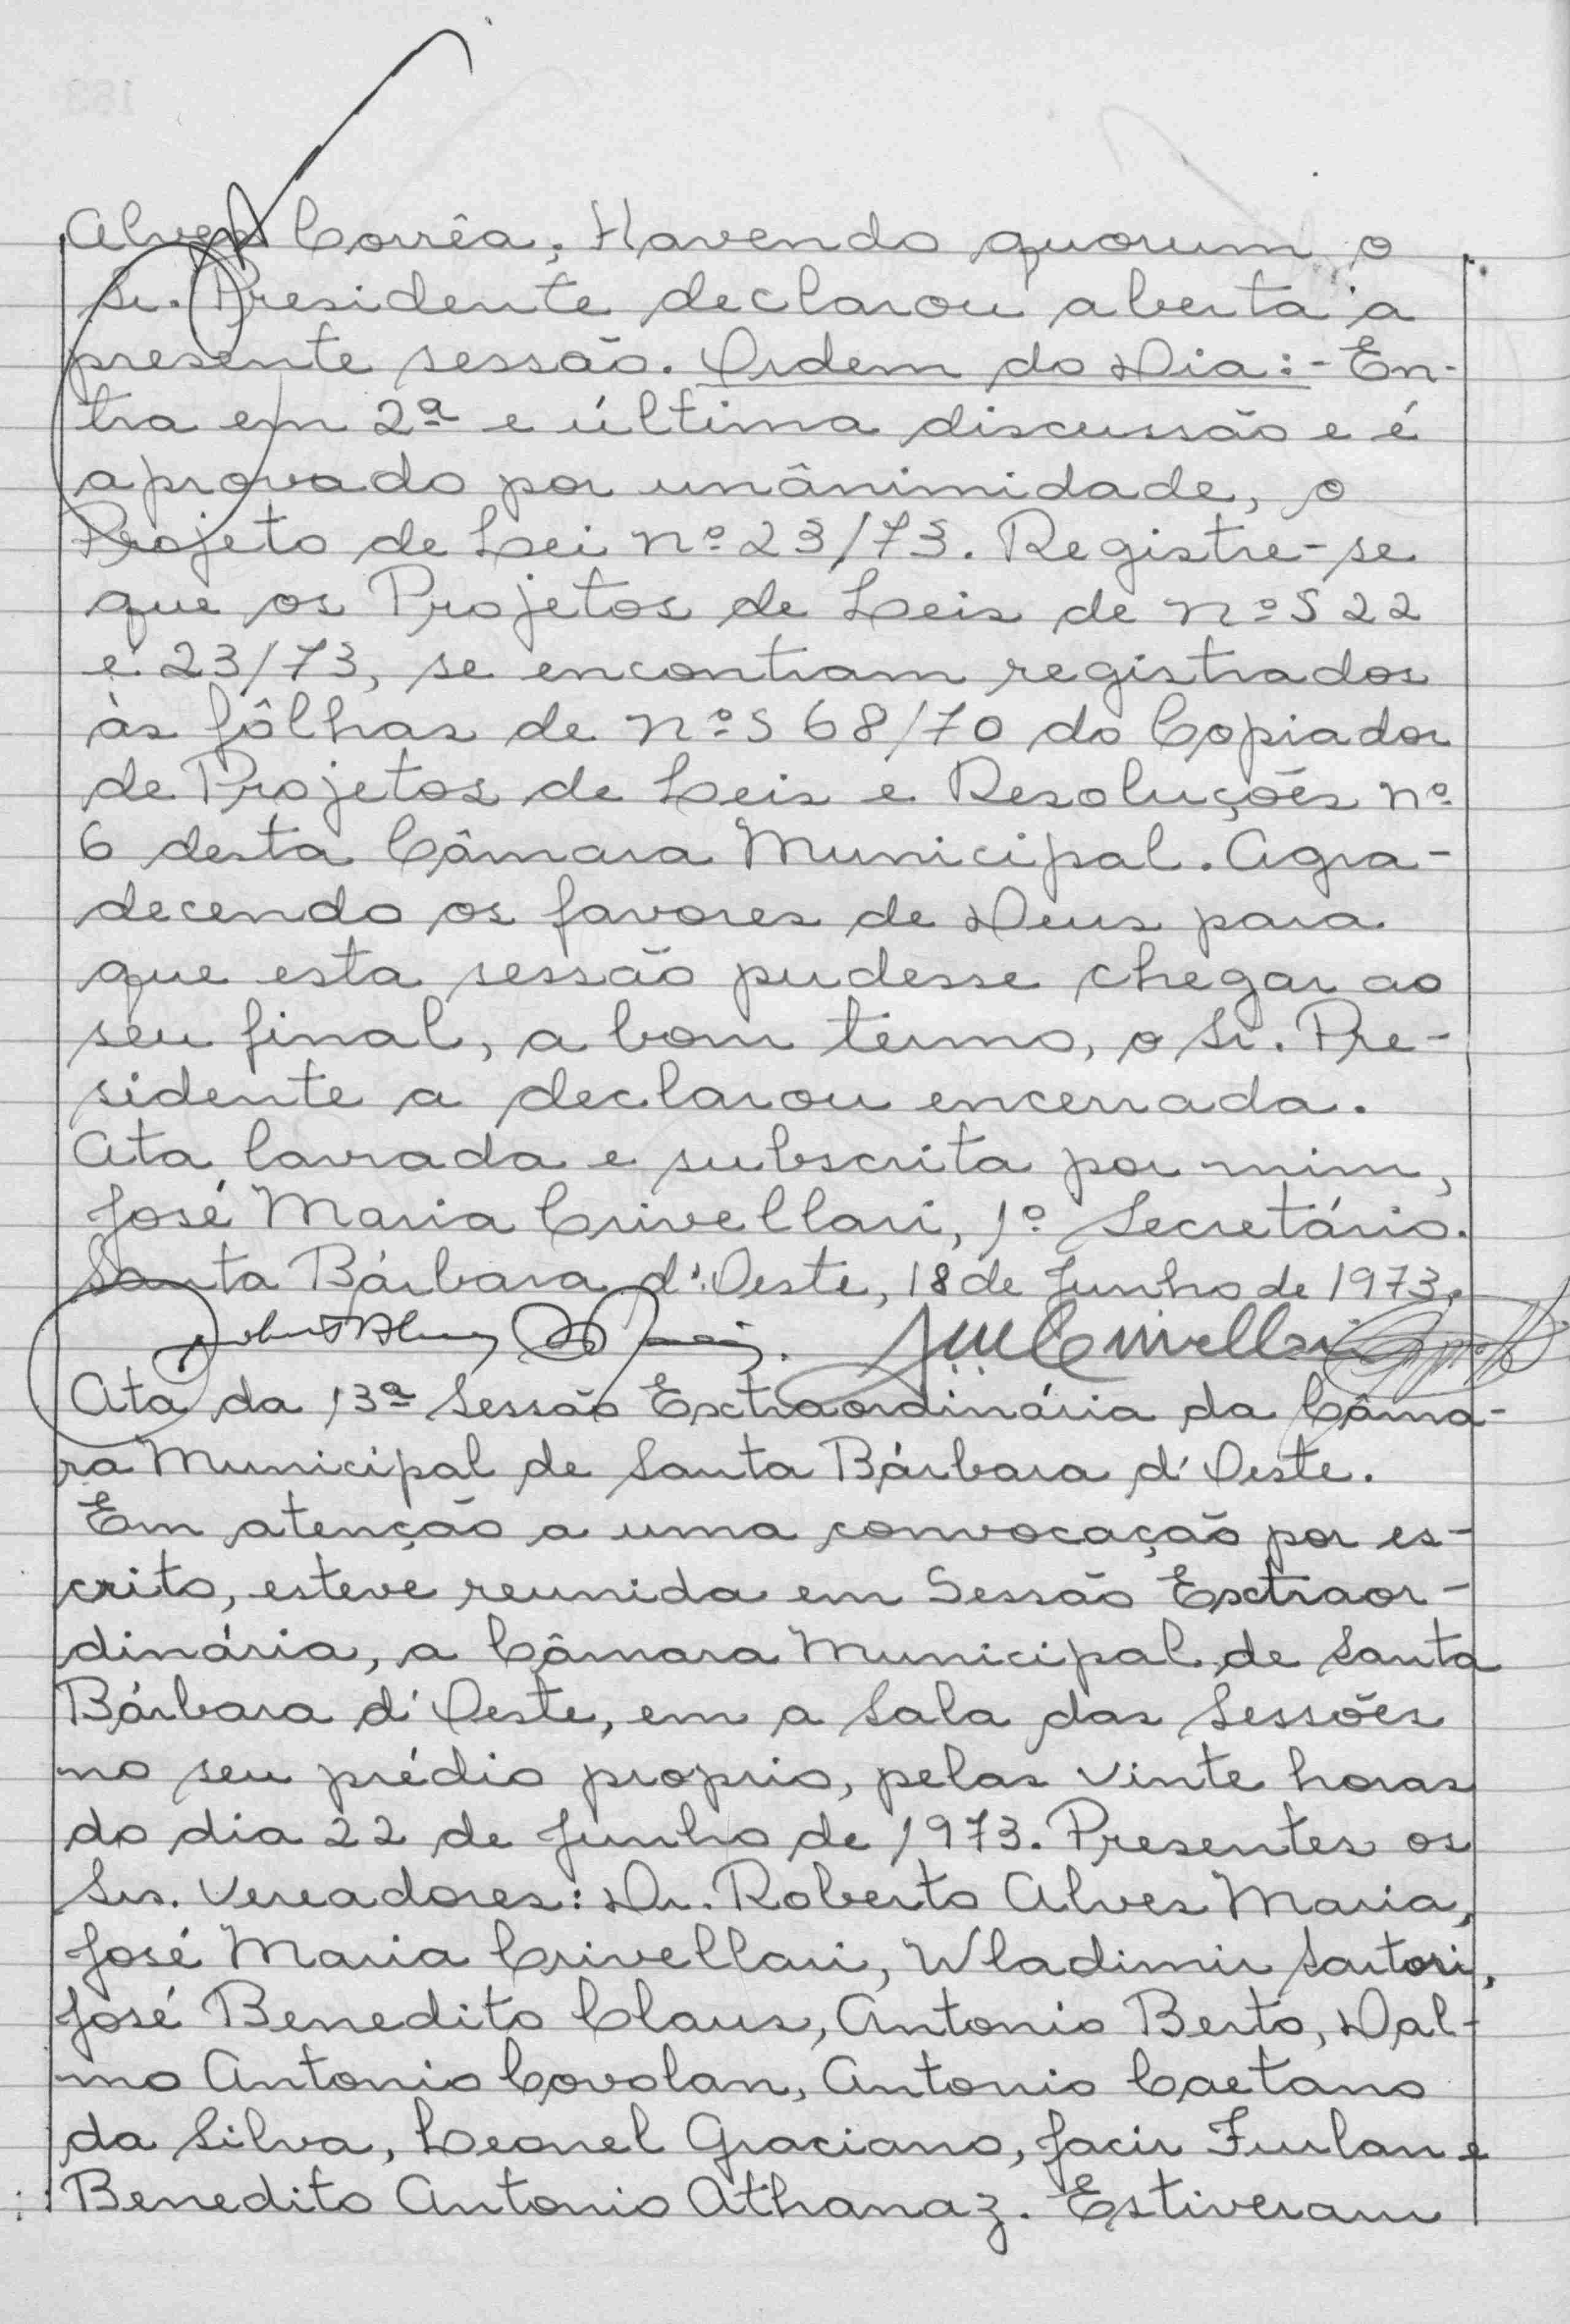 Alves Corrêa; Havendo quorum o
Sr. Presidente declarou aberta a
presente sessão. Ordem do Dia:- En-
tra em 2ª e última discussão e é
aprovado por unânimidade, o
Projeto de Lei nº 23/73. Registre-se
que os Projetos de Leis de nºs 22
e 23/73, se encontram registrados
às fôlhas de nºs 68/70 do Copiador
de Projetos de Leis e Resoluções nº
6 desta Câmara Municipal. Agra-
decendo os favores de Deus para
que esta sessão pudesse chegar ao
seu final, a bom termo, o Sr. Pre-
sidente a declarou encerrada.
Ata lavrada e subscrita por mim,
José Maria Crivellari, 1º Secretário.
Santa Bárbara d'Oeste, 18 de Junho de 1973.
Ata da 13ª Sessão Extraordinária da Câma-
ra Municipal de Santa Bárbara d'Oeste.
Em atenção a uma convocação por es-
crito, esteve reunida em Sessão Extraor-
dinária, a Câmara Municipal de Santa
Bárbara d'Oeste, em a Sala das Sessões
no seu prédio proprio, pelas vinte horas
do dia 22 de Junho de 1973. Presentes os
Srs. Vereadores: Dr. Roberto Alves Maria,
José Maria Crivellari, Wladimir Sartori,
José Benedito Claus, Antonio Berto, Dal-
mo Antonio Covolan, Antonio Caetano
da Silva, Leonel Graciano, Jacir Furlan e
Benedito Antonio Athanaz. Estiveram